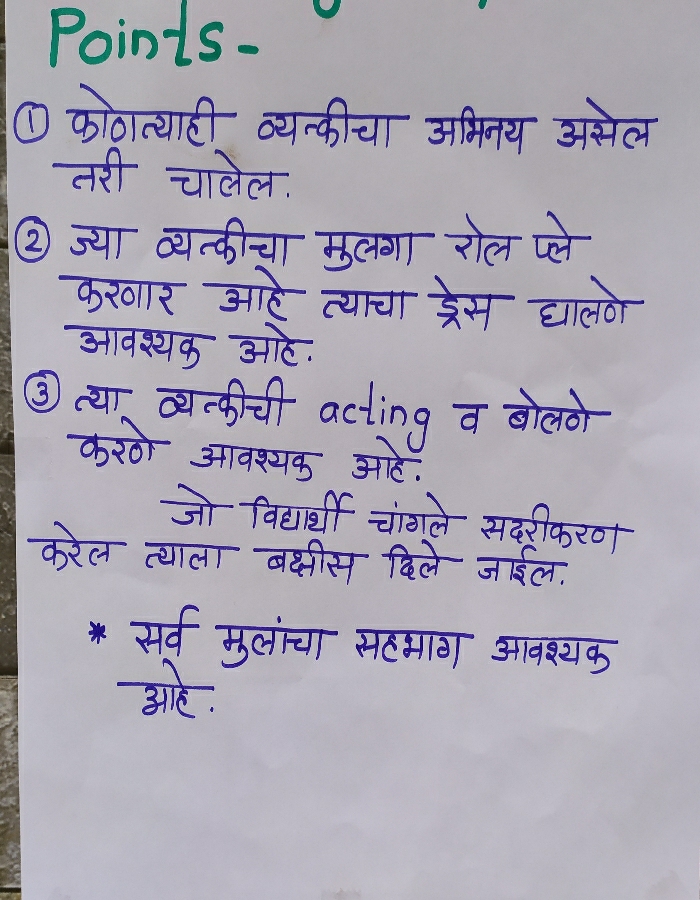 Points-
① कोणत्याही व्यक्तीचा अभिनय असेल
तरी चालेल.
② ज्या व्यक्तीचा मुलगा रोल प्ले
करणार आहे त्याचा ड्रेस घालणे
आवश्यक आहे.
③ त्या व्यक्तीची acting व बोलणे
करणे आवश्यक आहे.
जो विद्यार्थी चांगले सदरीकरण
करेल त्याला बक्षीस दिले जाईल.
* सर्व मुलांचा सहभाग आवश्यक
आहे.